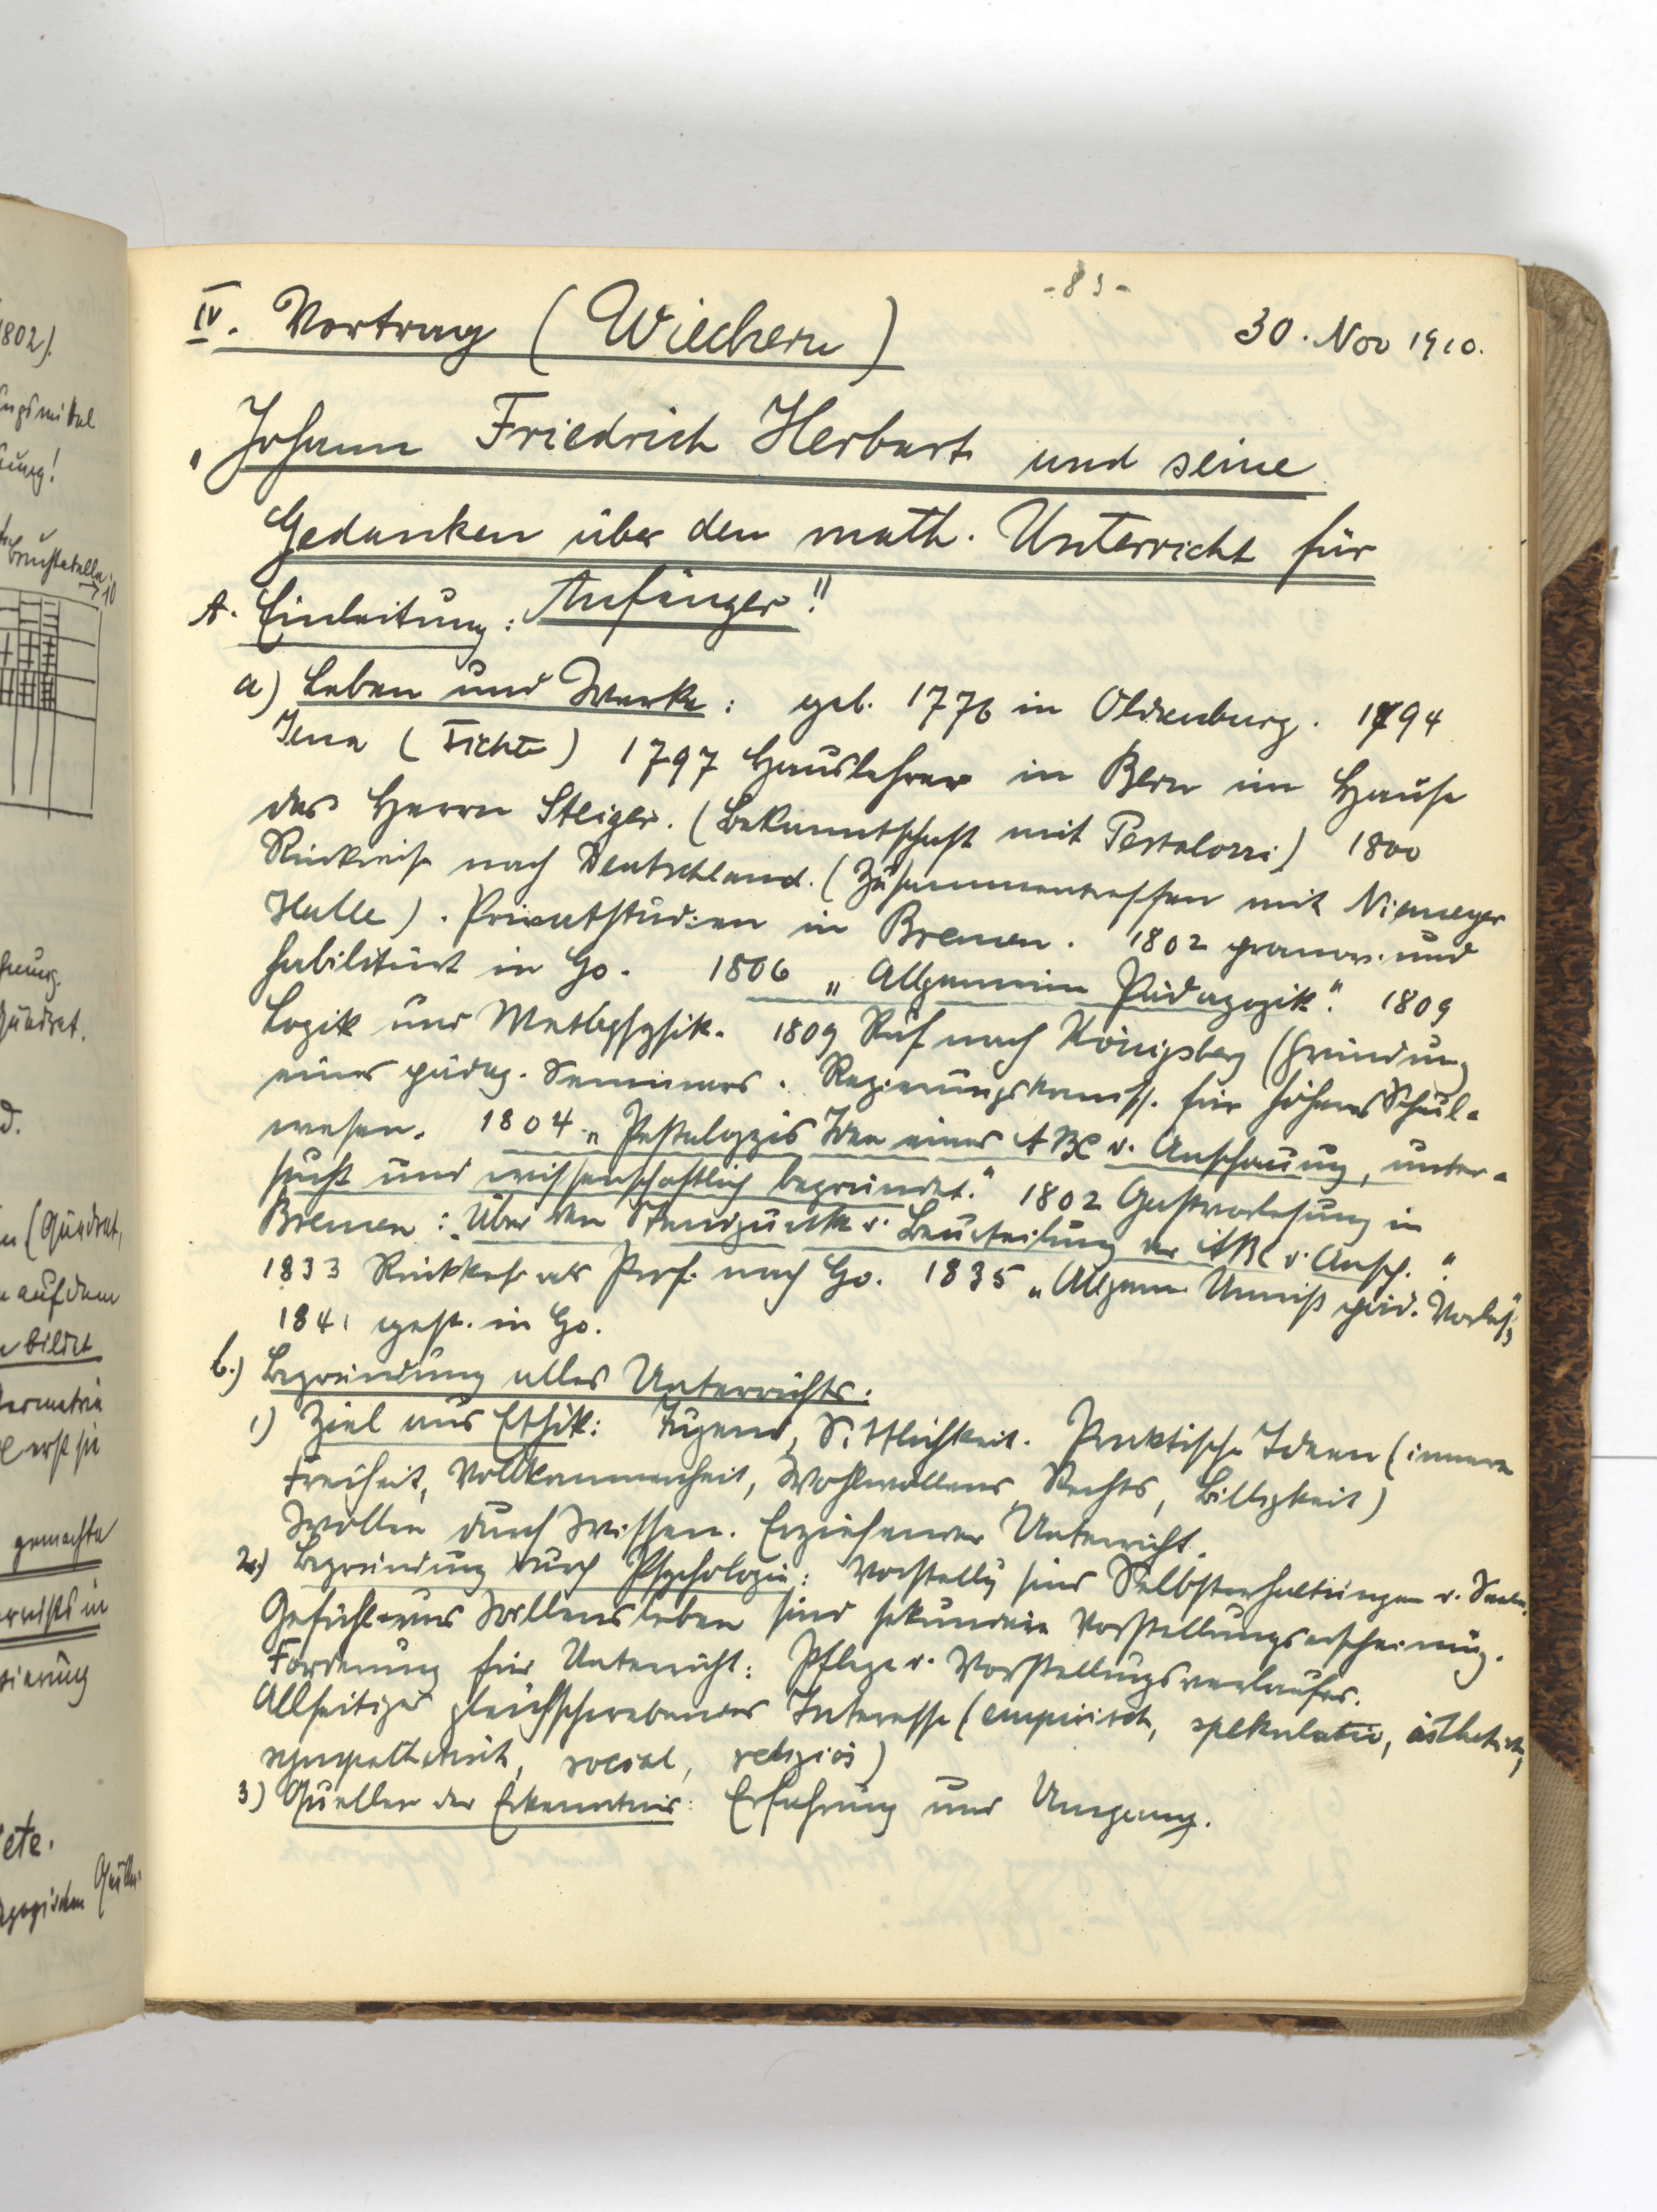 -83-
IV. Vortrag (Wiechern) 30. Nov 1910.
"Johann Friedrich Herbart und seine
Gedanken über den math. Unterricht für
Anfänger!"
A. Einleitung:
a) Leben und Werke: geb. 1776 in Oldenburg. 1794
Jena (Fichte) 1797 Hauslehrer in Bern im Hause
des Herrn Steiger. (Bekanntschaft mit Pestalozzi) 1800
Rückreise nach Deutschland. (Zusammentreffen mit Niemeyer
Halle). Privatstudien in Bremen. 1802 promov. und
habilitiert in Go. 1806 „Allgemeine Pädagogik". 1809
Logik und Metaphysik. 1809 Ruf nach Königsberg (Gründung
eines pädag. Seminars. Regierungskomiss. für höheres Schul-
wesen. 1804 „Pestalozzis Idee eines ABC d. Anschauung, unter-
sucht und wissenschaftlich begründet." 1802 Gastvorlesung in
Bremen: „Über den Standpunkt d. Beurteilung der ABC d. Ansch."
1833 Rückkehr als Prof. nach Go. 1835 „Allgem. Umriß päd. Vorles."
1841 gest. in Go.
b.) Begründung alles Unterrichts:
1) Ziel aus Ethik: Tugend, Sittlichkeit. Praktische Ideen (innere
Freiheit, Vollkommenheit, Wohlwollens, Rechts, Billigkeit)
Wollen durch Wissen. Erziehender Unterricht.
2.) Begründung durch Psychologie: Vorstellg sind Selbsterhaltungen d. Seele.
Gefühl- und Willensleben sind sekundäre Vorstellungserscheinung.
Forderung für Unterricht: Pflege d. Vorstellungsverlaufes.
Allseitiges gleichschwebendes Interesse (empirisch, spekulativ, ästhetisch,
sympathetisch, social, religiös)
3) Quellen der Erkenntnis: Erfahrung und Umgang.
1802).
auf dem
bildet
erst sie
gemachte